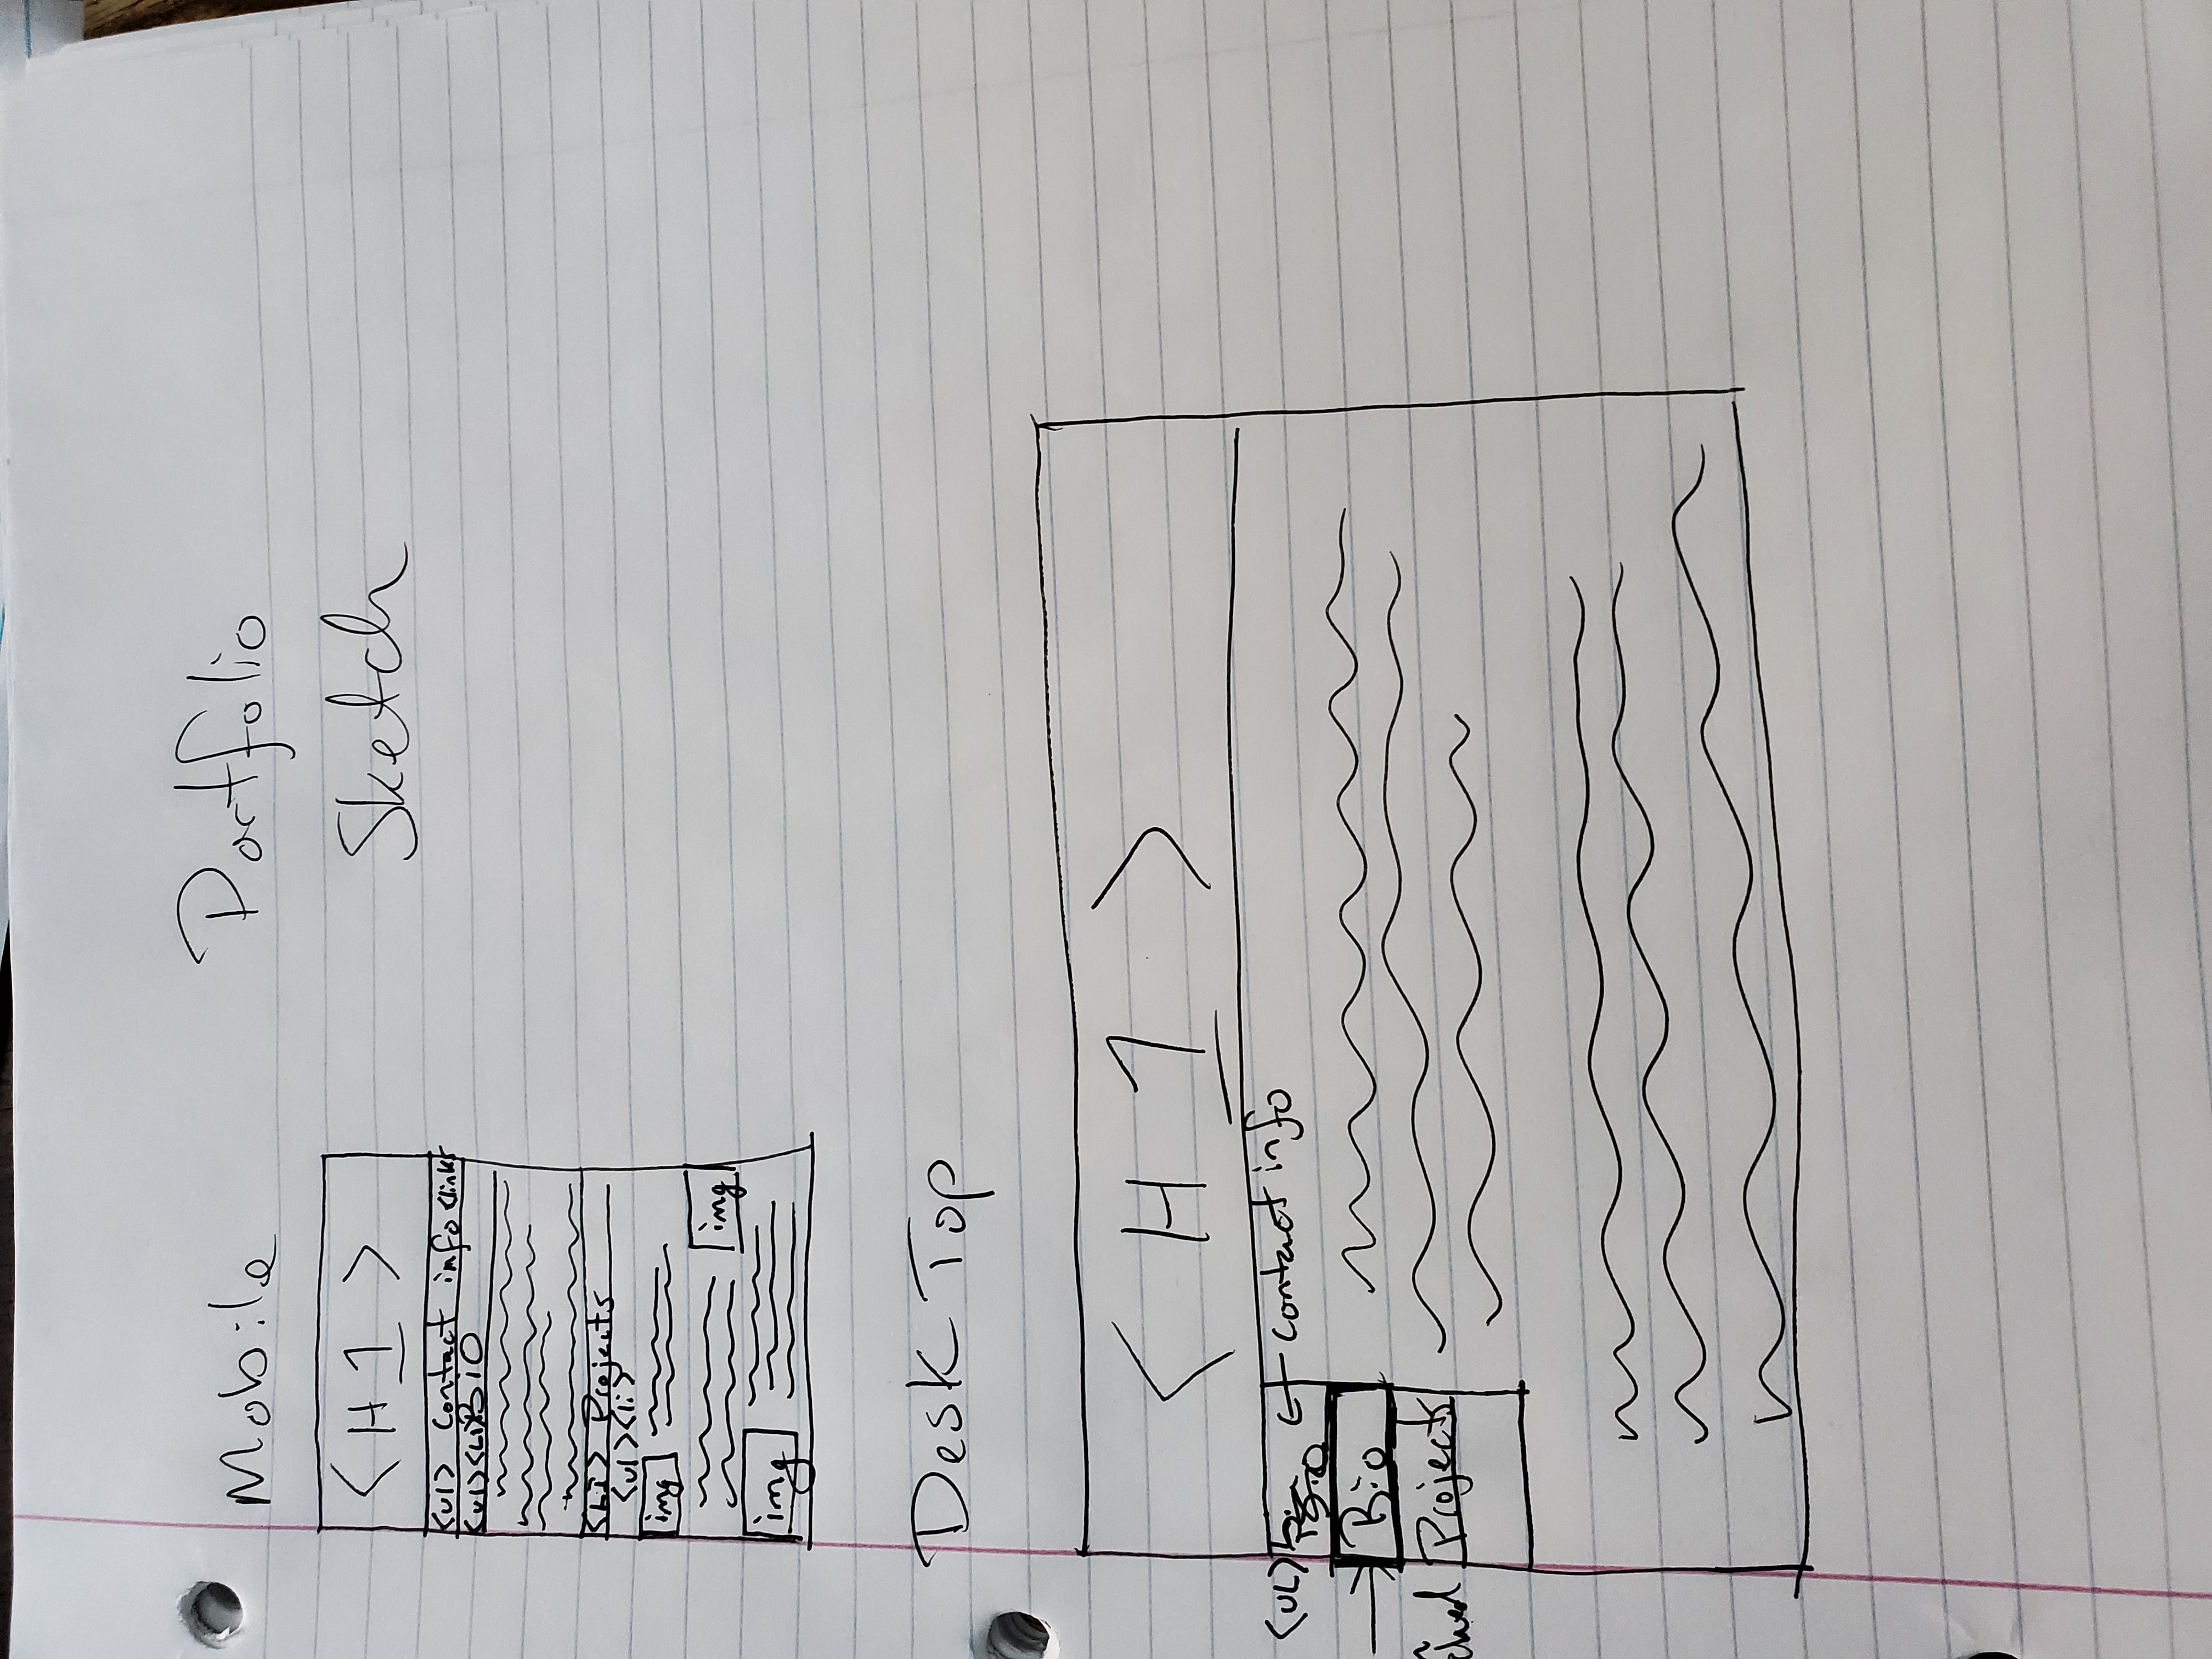 Mobile
Portfolio
Sketch
<H 1>
<ul> Contact info <links
<ul><Li>BiO
<Li> Projects
<ul><li>
img
img
img
Desk Top
< H 1 >
<UL)
contact info
Bio
Projects